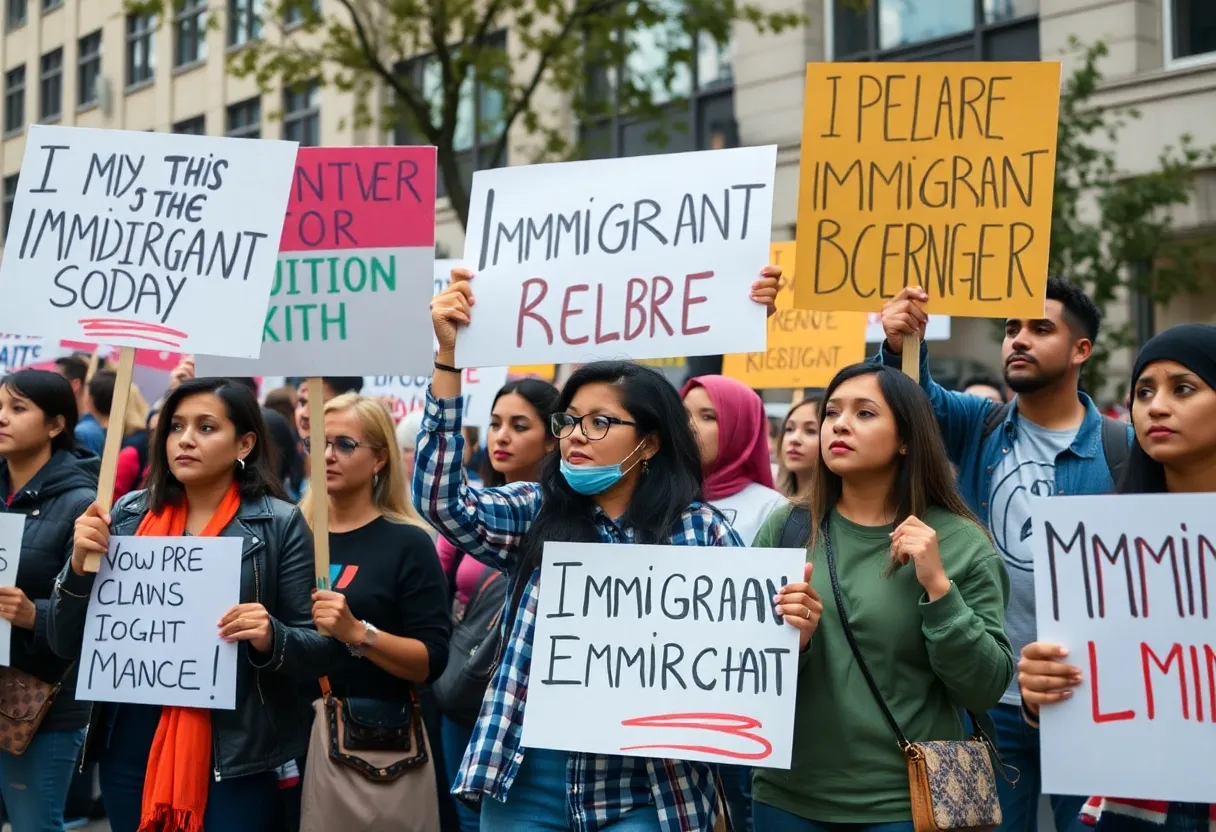 I MIY, THIS
'S THE
IMMDIRGANT
SODAY
NTVER
FOR
UITION
KITH
IMMMIGRANT
RELBRE
I PELARE
IMMIGRAN
BCERNGER
NOW PRE
CLANS
IOGHT
MANCE!
IMMIGRAAN
EMMIRCHAT
MMMIN
LMIN